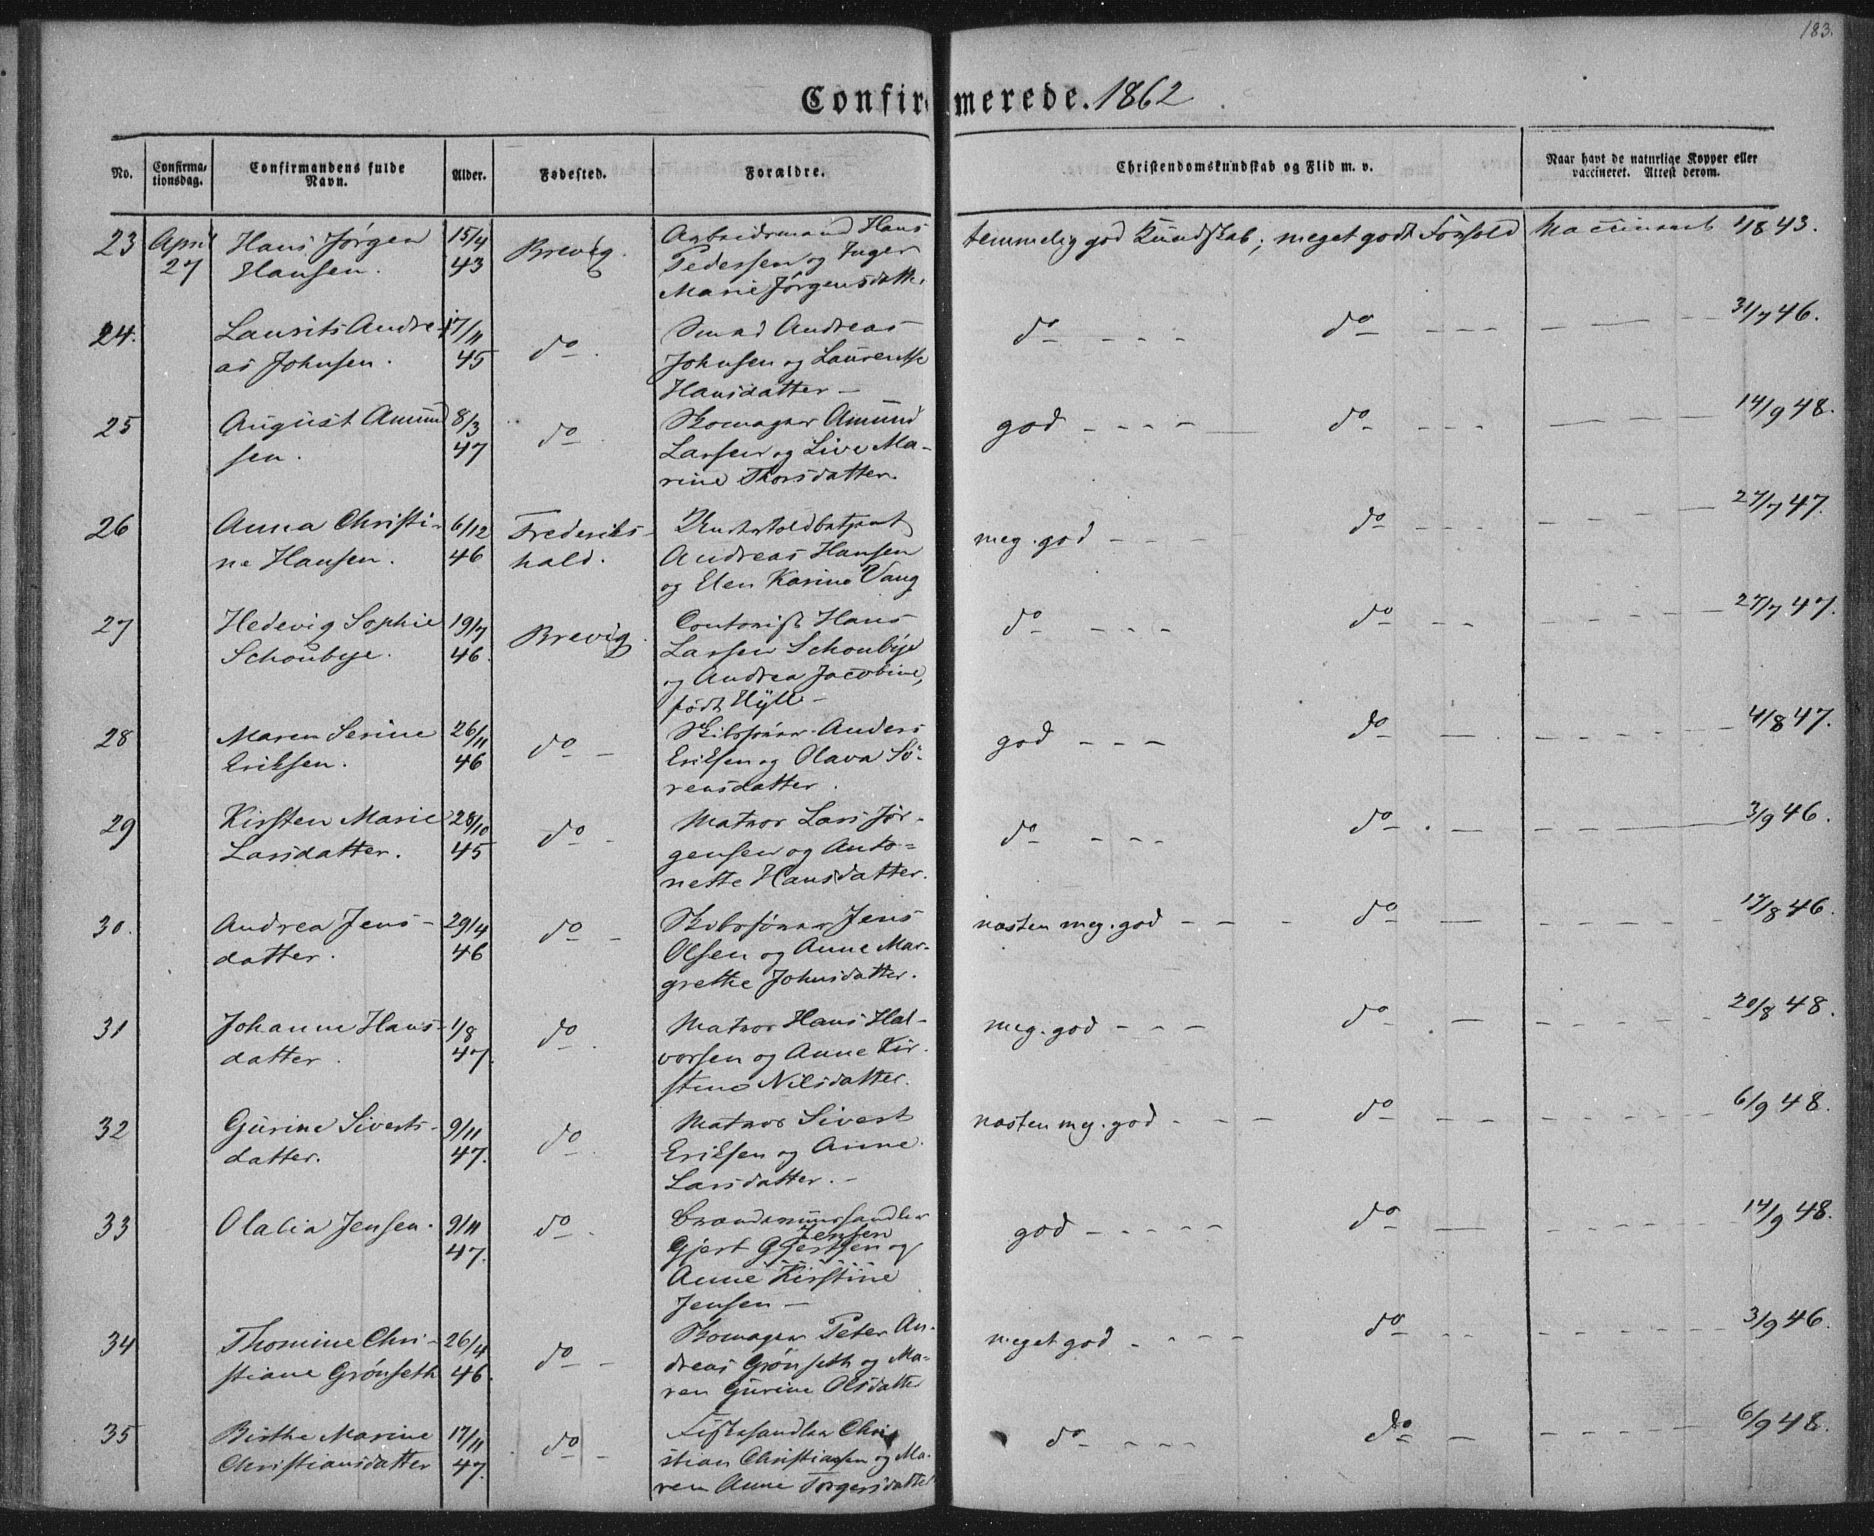 183.
Confirmerede. 1862
No.
Confirma-
tionsdag.
Confirmandens fulde
Navn.
Alder.
Fødested.
Forældre.
Christendomskundskab og Flid m. v.
Naar havt de naturlige Kopper eller
vaccineret. Attest derom.
23 April Hans Jørgen 15/4 Brevig. Arbeidsmand Hans temmelig god Kundskab; meget godt Forhold Vaccineret 4/8 43.
27 Hansen. 43 Pedersen og Inger
Marie Jørgensdatt.
24. Laurits Andre- 17/11 do. Smed Andreas do - - - - do - - - - 31/7 46.
as Johnsen. 45 Johnsen og Laurentse
Hansdatter -
25 August Amund 8/3 do. Skomager Amund god - - - - do - - - 14/9 48.
sen. 47 Larsen og Live Ma-
rine Thorsdatter.
26 Anna Christi- 6/12 Frederiks- meg. god - - - - do - - - 27/7 47.
ne Hansen. 46 hald. Andreas Hansen
og Elen Karine Vang
27 Hedevig Sophie 19/7 Brevig. Contorist Hans do - - - do - - 27/7 47.
Schoubye. 46. Larsen Schoubye
og Andrea Jacobine,
født Hÿll -
28 Maren Serine 26/11 do - Anders god - - - do - 4/8 47.
Eriksen. 46 Eriksen og Olava Sö-
rensdatter.
29 Kirsten Marie 28/10 do - Matros Lars Jør- do - - - do . - 3/9 46.
Larsdatter. 45 gensen og Anto-
nette Hansdatter.
30. Andrea Jens- 29/4 do - Jens næsten meg. god - - - do - 17/8 46.
datter. 46 Olsen og Anne Mar-
grethe Johnsdatter.
31 Johanne Hans- 1/8 do. Matros Hans Hal- meg. god - - - do . - 20/8 48.
datter. 47. vorsen og Anne Kir-
stine Nilsdatter.
32 Gurine Siverts- 9/11 do. Matros Sivert næsten meg. god - - - do - - 6/9 48.
datter. 47. Eriksen og Anne
Larsdatter. -
33 Olalia Jensen. 9/11 do. god - - - - do - 14/9 48.
Jensen
47. Gjert Gjertsen og
Anne Kirstine
Jensen -
34 Thomine Chri- 26/4 do - Skomager Peter An- meget god - - - - do - - - 3/9 46.
stiane Grønseth 46. dreas Grönseth og Ma-
ren Gurine Olsdatter
35 Birthe Marine 17/11 do - Chri- do - - - - do - 6/9 48.
Christiansdatter 47. stian Christiansen og Ma-
ren Anne Torgersdatter